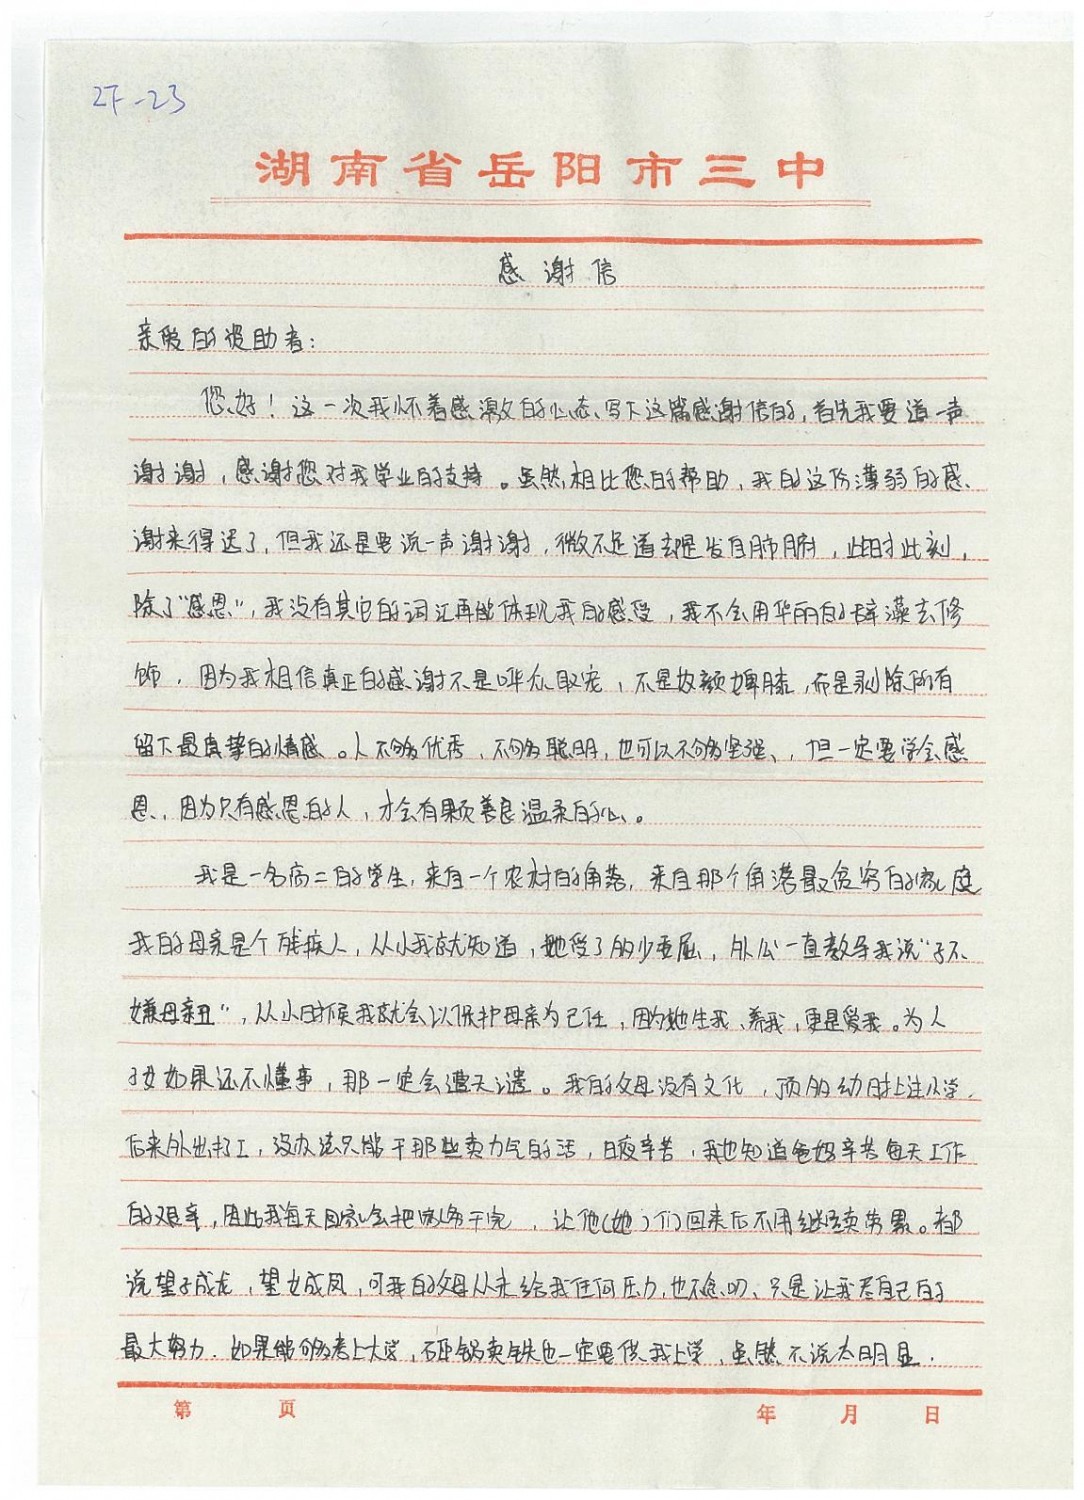 2F-23
湖南省岳阳市三中
感谢信
亲爱的资助者：
您好！这一次我怀着感激的心态写下这篇感谢信的，首先我要道一声
谢谢，感谢您对我学业的支持。虽然相比您的帮助，我的这份薄弱的感
谢来得迟了，但我还是要说一声谢谢，微不足道却是发自肺腑，此时此刻，
除了“感恩”，我没有其它的词汇再能体现我的感受，我不会用华丽的辞藻去修
饰，因为我相信真正的感谢不是哗众取宠，不是奴颜婢膝，而是剥除所有
留下最真挚的情感。人不够优秀，不够聪明，也可以不够坚强，但一定要学会感
恩，因为只有感恩的人，才会有颗善良温柔的心。
我是一名高二的学生，来自一个农村的角落，来自那个角落最贫穷的家庭
我的母亲是个残疾人，从小我就知道，她受了多少委屈，外公一直教导我说“子不
嫌母亲丑”，从小时候我就会以保护母亲为己任，因为她生我、养我，更是爱我。为人
子女如果还不懂事，那一定会遭天谴。我的父母没有文化，顶多幼时上过小学，
后来外出打工，没办法只能干那些卖力气的活，日夜辛苦，我也知道爸妈辛苦每天工作
的艰辛，因此我每天回家会把家务干完，让他(她)们回来后不用继续劳累。都
说望子成龙，望女成凤，可我的父母从未给我任何压力，也不念叨、只是让我尽自己的
最大努力．如果能够考上大学，砸锅卖铁也一定要供我上学，虽然不说太明显．
第 页 年 月 日